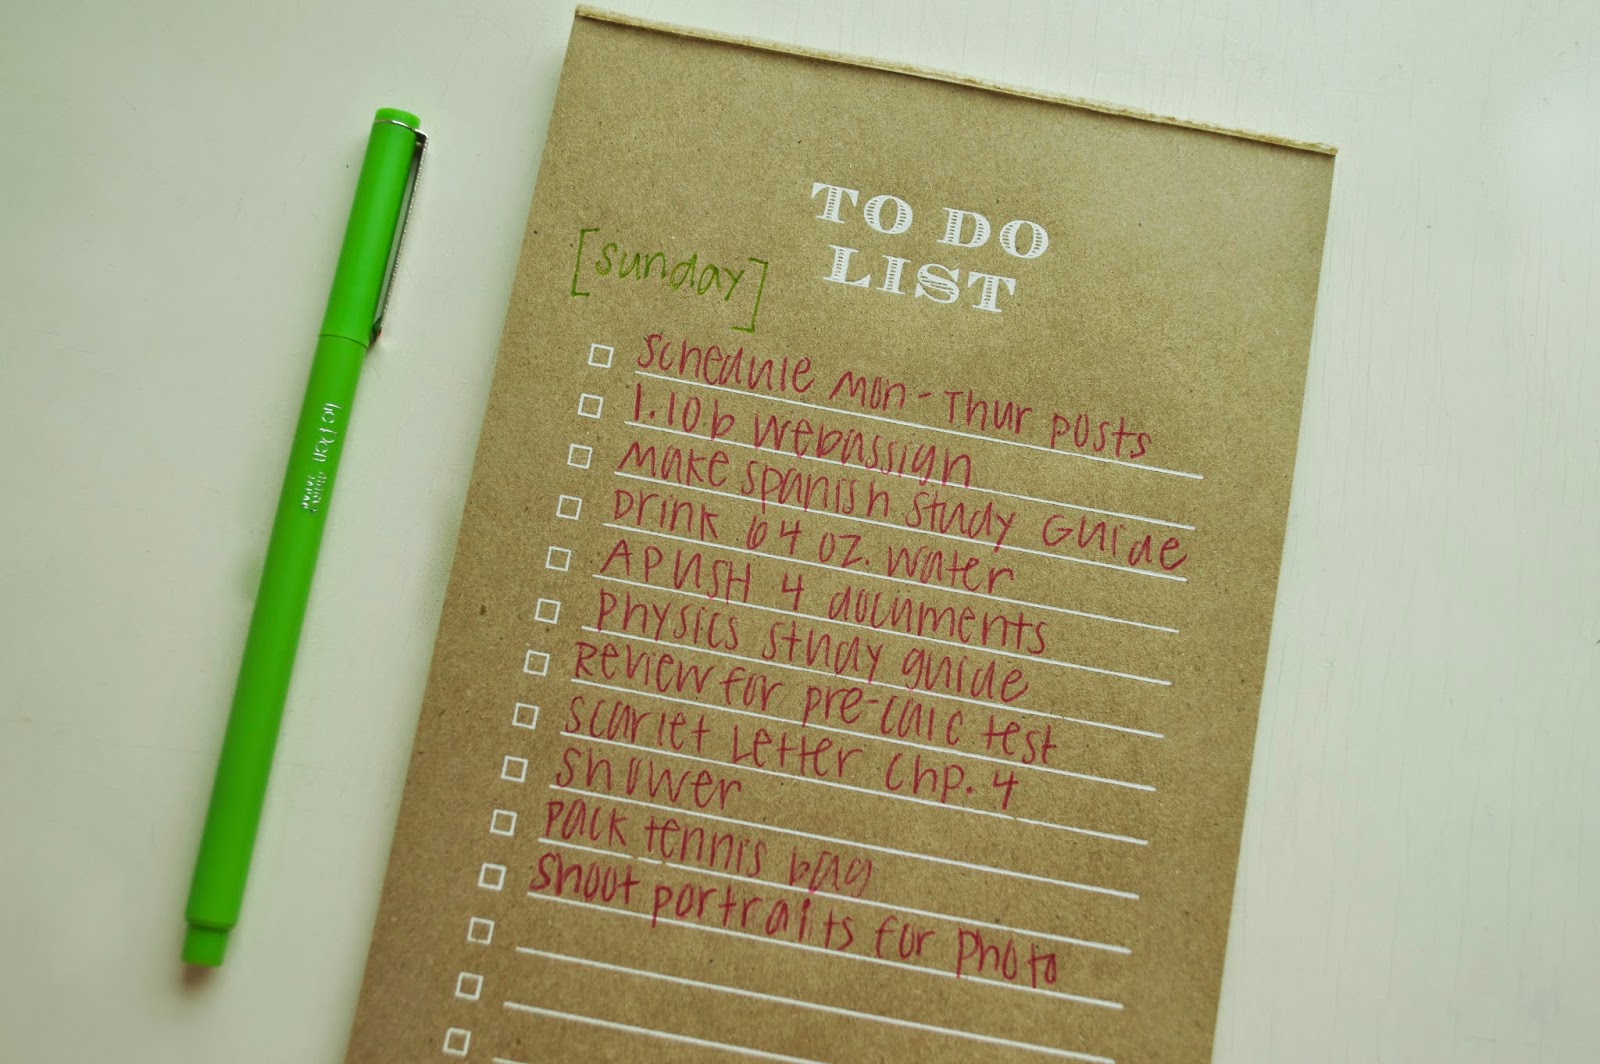 Le Pen
JAPAN
TO DO
LIST
[sunday]
Schedule Mon-Thur posts
1.10b webassign
Make Spanish Study Guide
Drink 64 oz. water
APUSH 4 documents
Physics study guide
Review for pre-calc test
Scarlet Letter Chp. 4
Shower
Pack tennis bag
Shoot portraits for Photo